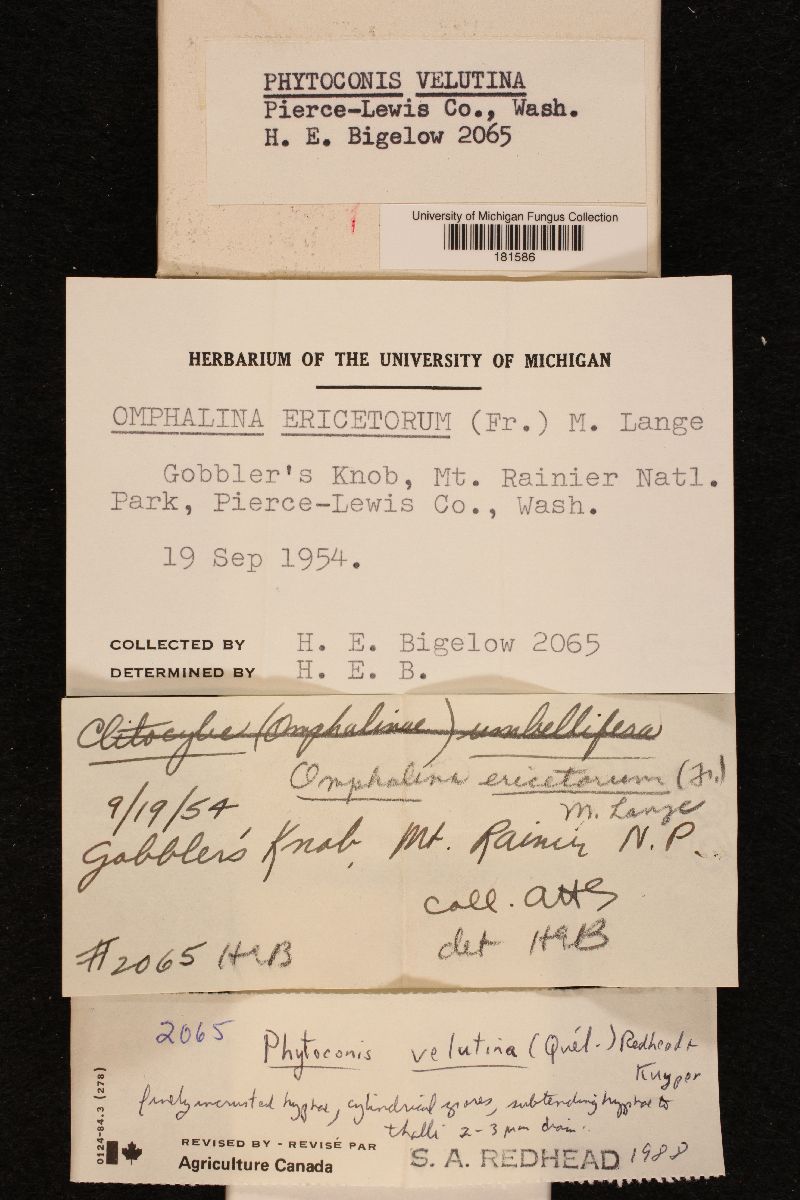 PHYTOCONIS VELUTINA
Pierce-Lewis Co., Wash.
H. E. Bigelow 2065
University of Michigan Fungus Collection
181586
HERBARIUM OF THE UNIVERSITY OF MICHIGAN
OMPHALINA ERICETORUM (Fr.) M. Lange
Gobbler's Knob, Mt. Rainier Natl.
Park, Pierce-Lewis Co., Wash.
19 Sep 1954.
COLLECTED BY H. E. Bigelow 2065
DETERMINED BY H. E. B.
Clitocybe (Omphalinae) umbellifera
Omphalina ericetorum (Fr.)
M. Lange
9/19/54
Gobbler's Knob, Mt. Rainier N.P.
coll. AHS
det HEB
#2065 HEB
2065 Phytoconis velutina (Quél.) Redhead &
Kuyper
finely incrusted hyphae, cylindrical spores, subtending hyphae to
thalli 2-3 µm diam.
0124-84.3 (278)
REVISED BY - REVISÉ PAR
Agriculture Canada
S. A. REDHEAD 1988